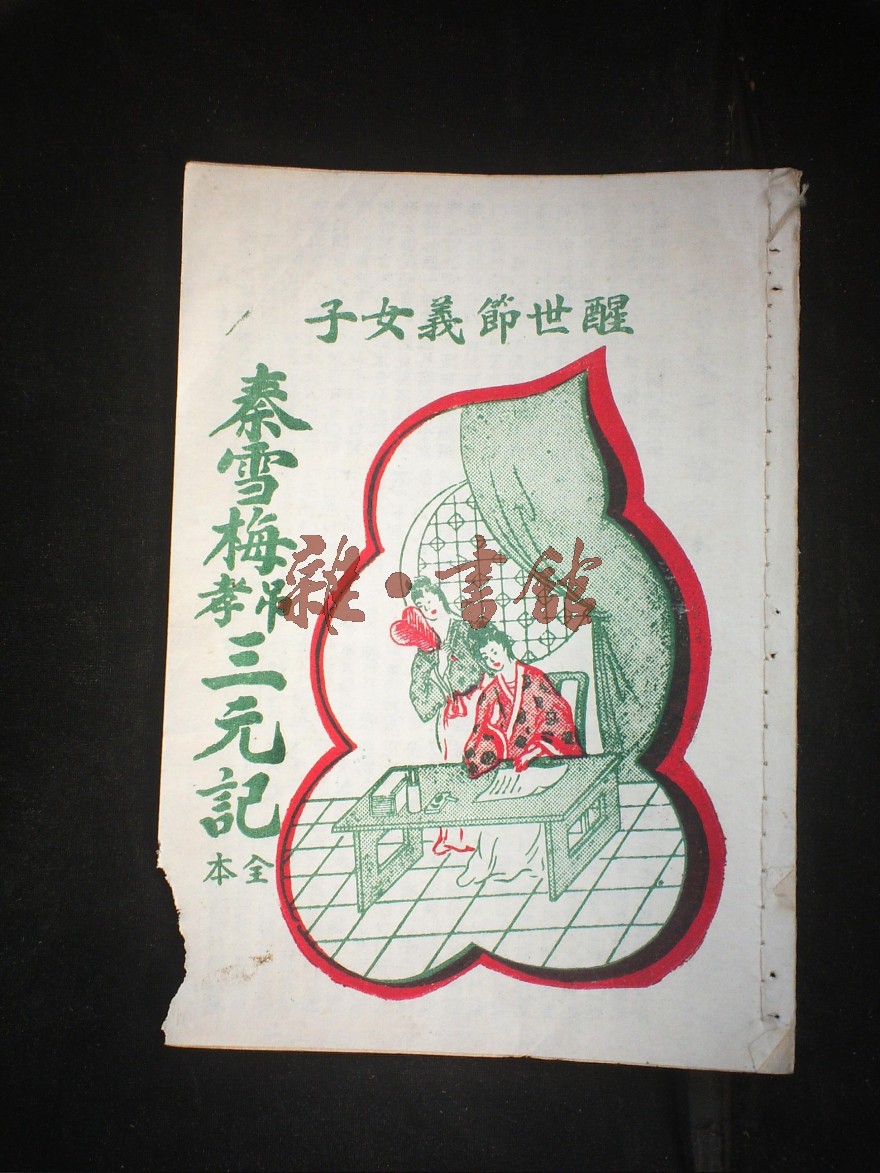 醒世節義女子
秦雪梅吊孝三元記
全本
雜·書館